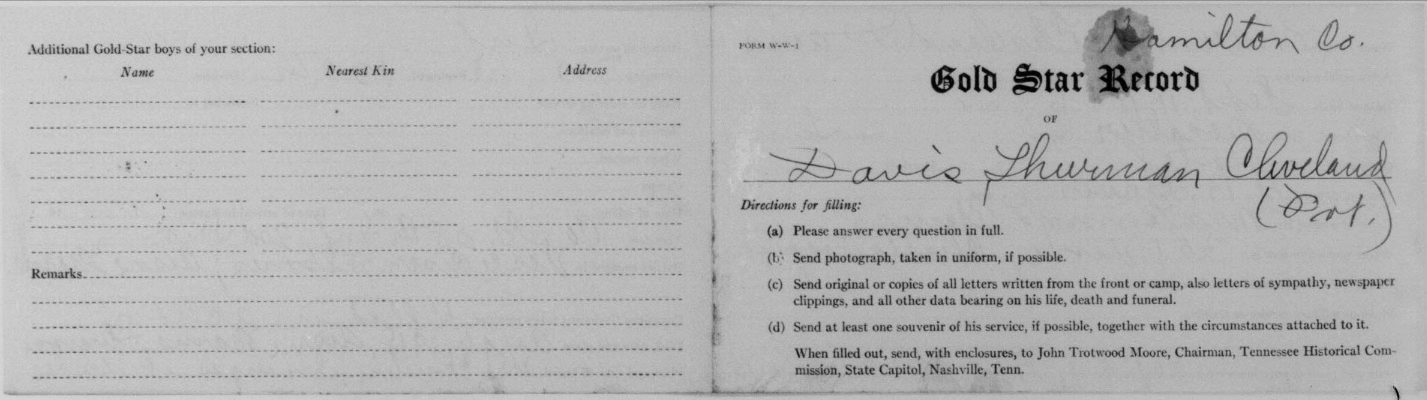 Additional Gold-Star boys of your section:
Name Nearest Kin Address
Remarks
FORM W-W-1
Hamilton Co.
Gold Star Record
OF
Davis Thurman Cleveland
(Pvt.)
Directions for filling:
(a) Please answer every question in full.
(b) Send photograph, taken in uniform, if possible.
(c) Send original or copies of all letters written from the front or camp, also letters of sympathy, newspaper
clippings, and all other data bearing on his life, death and funeral.
(d) Send at least one souvenir of his service, if possible, together with the circumstances attached to it.
When filled out, send, with enclosures, to John Trotwood Moore, Chairman, Tennessee Historical Com-
mission, State Capitol, Nashville, Tenn.